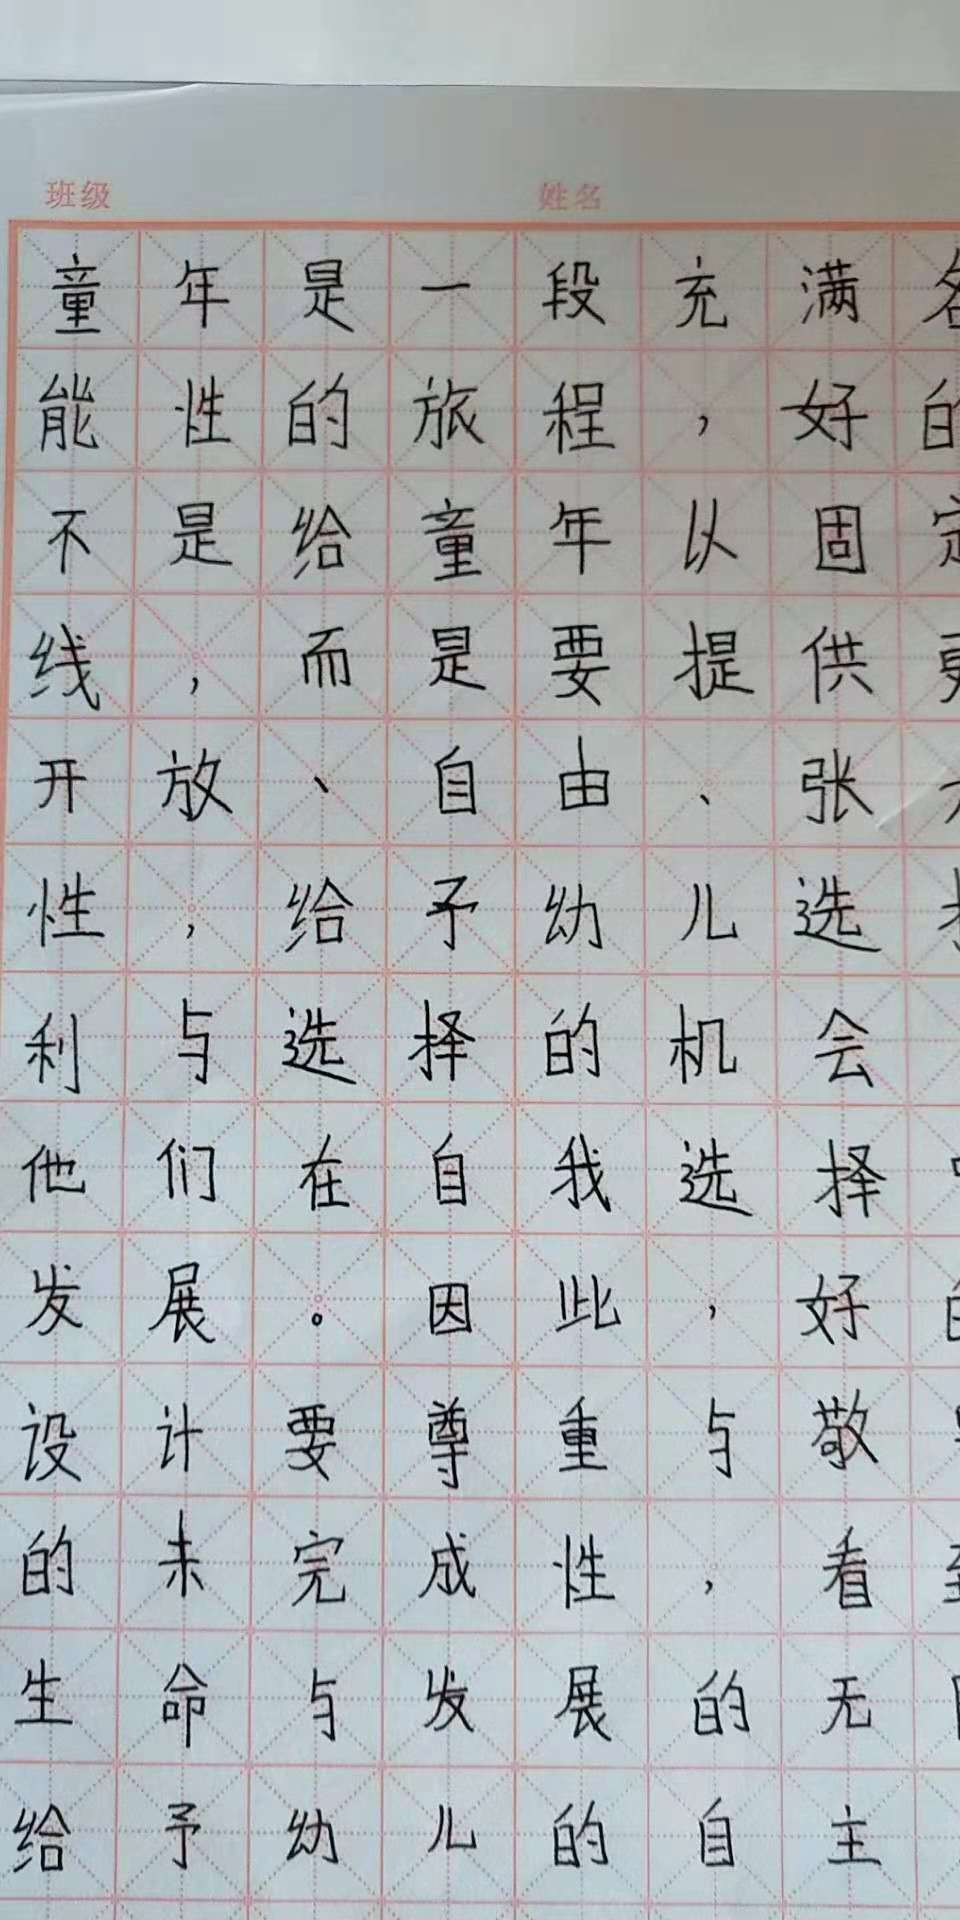 班级 姓名
童年是一段充满各
能性的旅程，好的
不是给童年以固定
线，而是要提供更
开放、自由、张
性，给予幼儿选择
利与选择的机会
他们在自我选择中
发展。因此，好的
设计要尊重与敬
的未完成性，看到
生命与发展的无
给予幼儿的自主